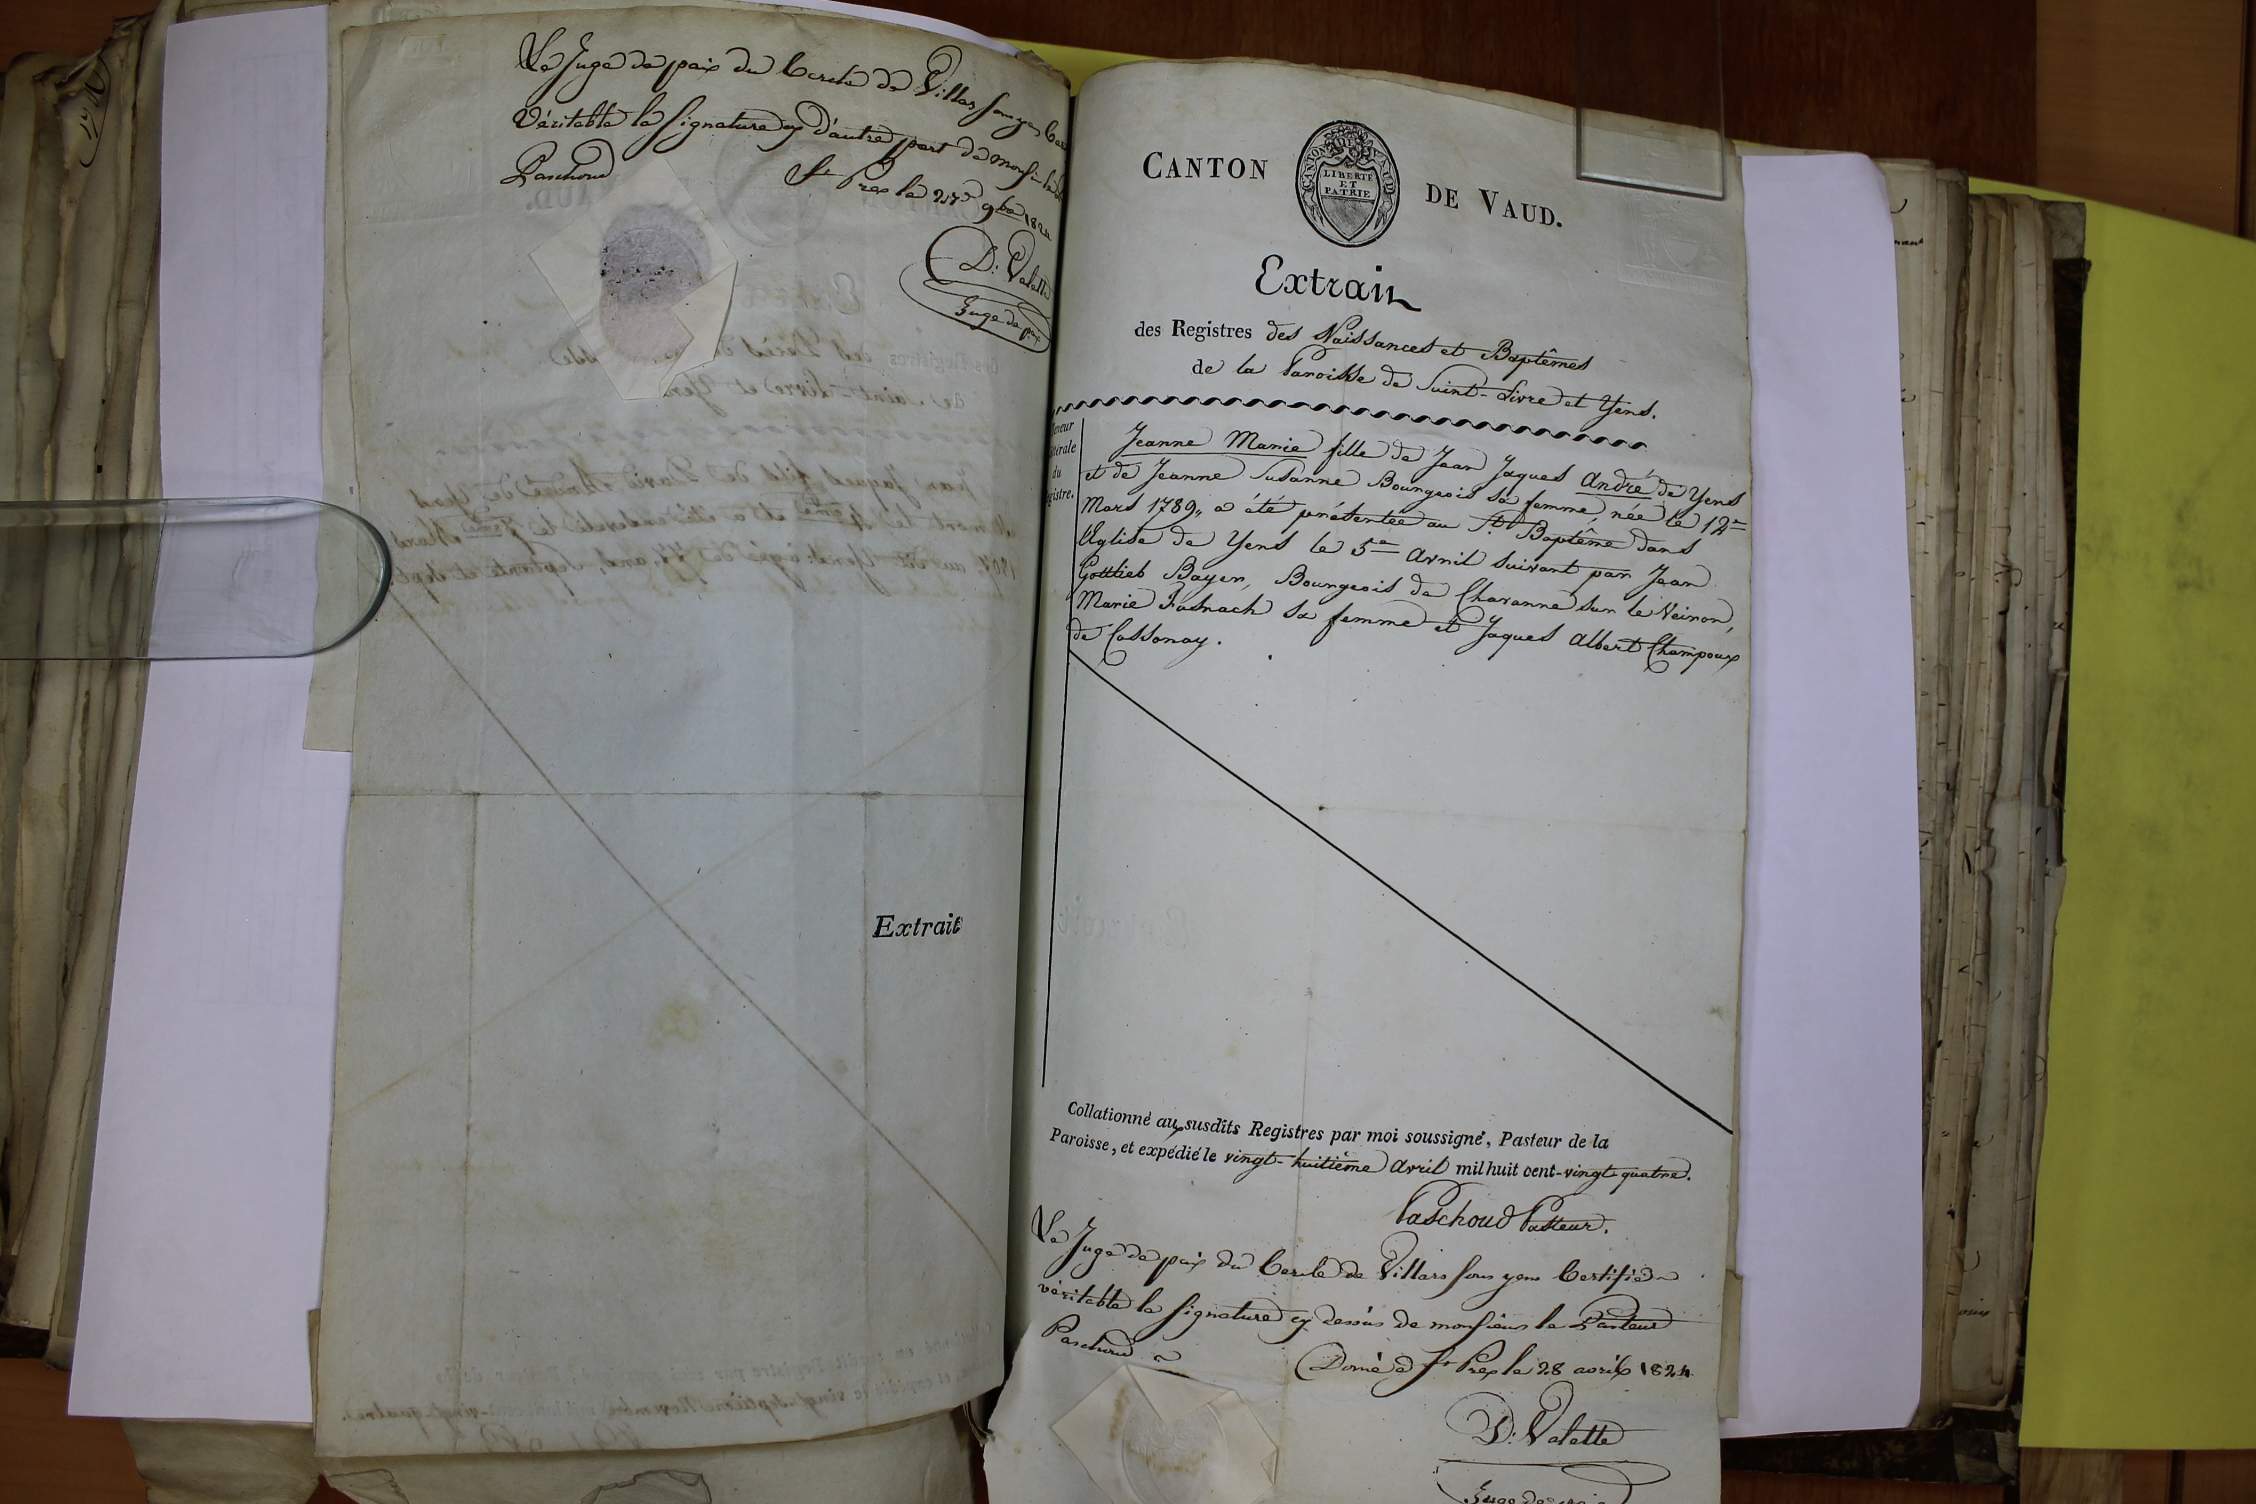 Le Juge de paix du Cercle de Villars sous yens Cer
Véritable la signature cy d'autre part de Monsr le
Paschoud
St Prex le 27e 9bre 1824
D: Valette
Juge de paix
Extrait
CANTON DE VAUD.
CANTON DE VAUD
LIBERTÉ
ET
PATRIE
Extrait
des Registres des Naissances et Baptêmes
de la Paroisse de Saint-Livre et Yens.
Teneur
littérale
du
registre.
Jeanne Marie fille de Jean Jaques André de Yens
et de Jeanne Susanne Bourgeois sa femme, née le 12e
Mars 1789, a été présentée au St. Baptême dans
l'Eglise de Yens le 5e Avril suivant par Jean
Gottlieb Bayer, Bourgeois de Chavanne sur le Veiron,
Marie Fasnach sa femme et Jaques Albert Champoux
de Cossonay.
Collationné aux susdits Registres par moi soussigné, Pasteur de la
Paroisse, et expédié le vingt-huitième Avril mil huit cent-vingt quatre.
Paschoud Pasteur.
Le Juge de paix du Cercle de Villars sous yens Certifie
véritable la signature cy dessus de monsieur le Pasteur
Paschoud
Donné à St Prex le 28 avril 1824
D: Valette
Juge de paix